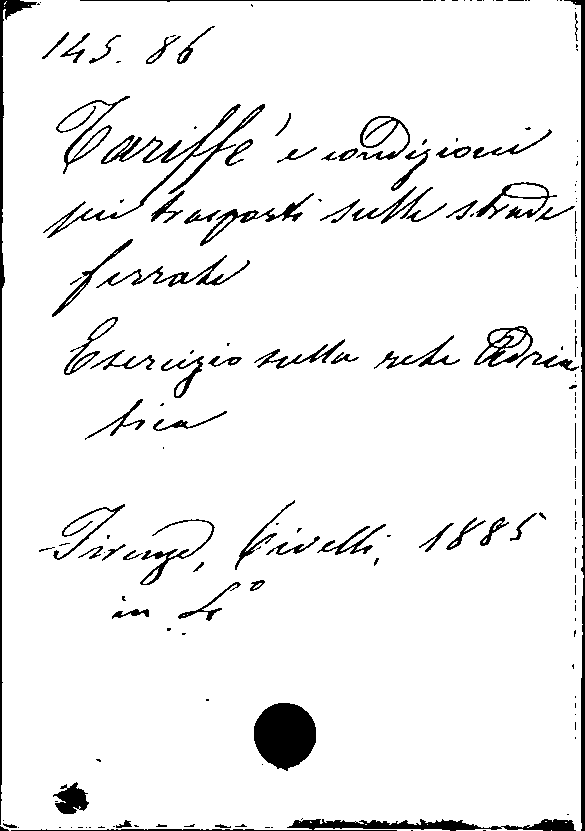 145. 86
Tariffe e condizioni
pei trasporti sulle strade
ferrate
Esercizio sulla rete Adria,
tica
Firenze, Civelli, 1885
in 4°